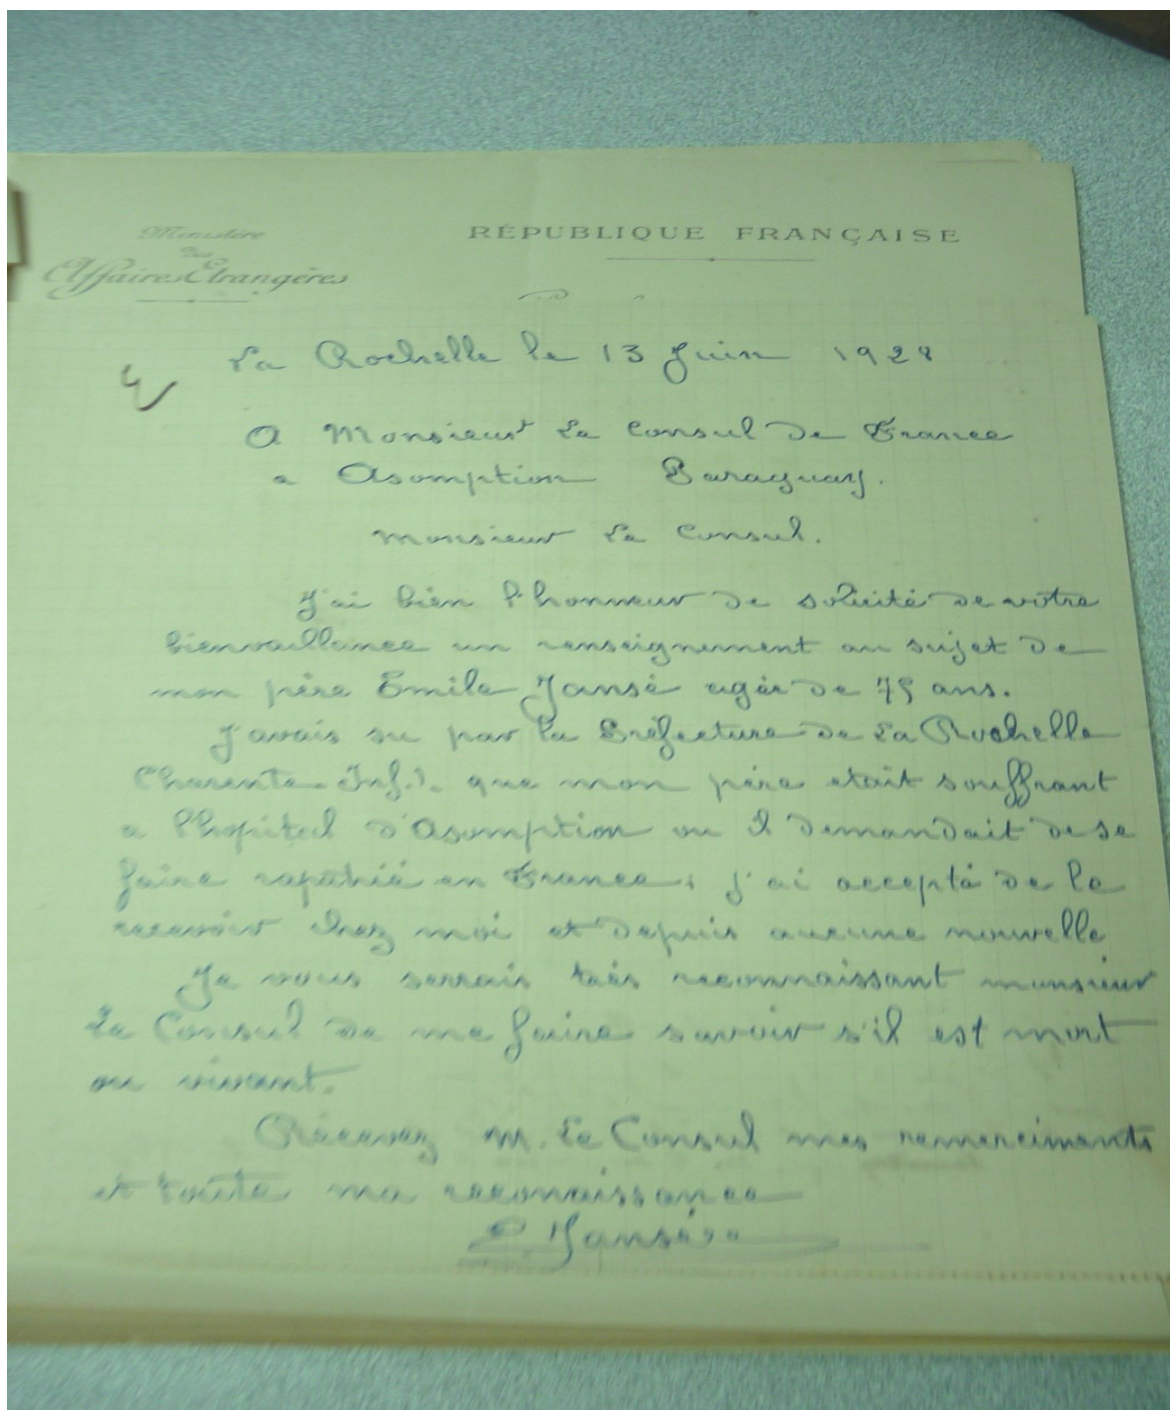 Ministère
des
Affaires Etrangères
RÉPUBLIQUE FRANÇAISE
La Rochelle le 13 Juin 1928
A Monsieur Le Consul de France
a Asomption Paraguay.
Monsieur Le Consul.
J'ai bien l'honneur de solicité de votre
bienvaillance un renseignement au sujet de
mon père Emile Jansé agér de 75 ans.
J'avais su par la Préfecture de La Rochelle
Charente Inf.). que mon père etait souffrant
a l'hopital d'Asomption ou il demandait de se
faire rapatrié en France; j'ai accepté de le
recevoir chez moi et depuis aucune nouvelle
Je vous serrais très reconnaissant monsieur
Le Consul de me faire savoir s'il est mort
ou vivant.
Récevez M. Le Consul mes remerciments
et toute ma reconnaissance